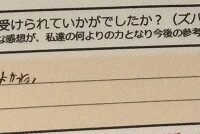 受けられていかがでしたか？（ズバ
な感想が、私達の何よりの力となり今後の参考
よかった。